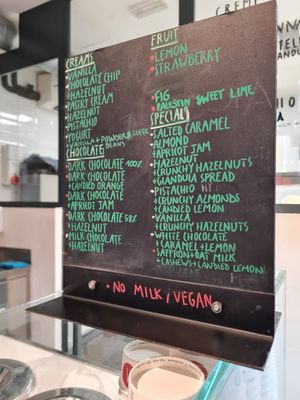 CREAMS
VANILLA
CHOCOLATE CHIP
HAZELNUT
PASTRY CREAM
HAZELNUT
PISTACHIO
YOGURT
VANILLA + POWDER COFFEE
CHOCOLATE
DARK CHOCOLATE 100%
DARK CHOCOLATE
+CANDIED ORANGE
DARK CHOCOLATE
+APRICOT JAM
DARK CHOCOLATE 58%
+HAZELNUT
MILK CHOCOLATE
+HAZELNUT
FRUIT
LEMON
STRAWBERRY
FIG
SWEET LIME
SPECIALS
SALTED CARAMEL
ALMOND
+APRICOT JAM
HAZELNUT
+CRUNCHY HAZELNUTS
+GIANDUIA SPREAD
PISTACHIO
+CRUNCHY ALMONDS
+CANDIED LEMON
VANILLA
+CRUNCHY HAZELNUTS
WHITE CHOCOLATE
+CARAMEL+LEMON
SAFFRON+OAT MILK
+CASHEWS+CANDIED LEMON
• NO MILK / VEGAN